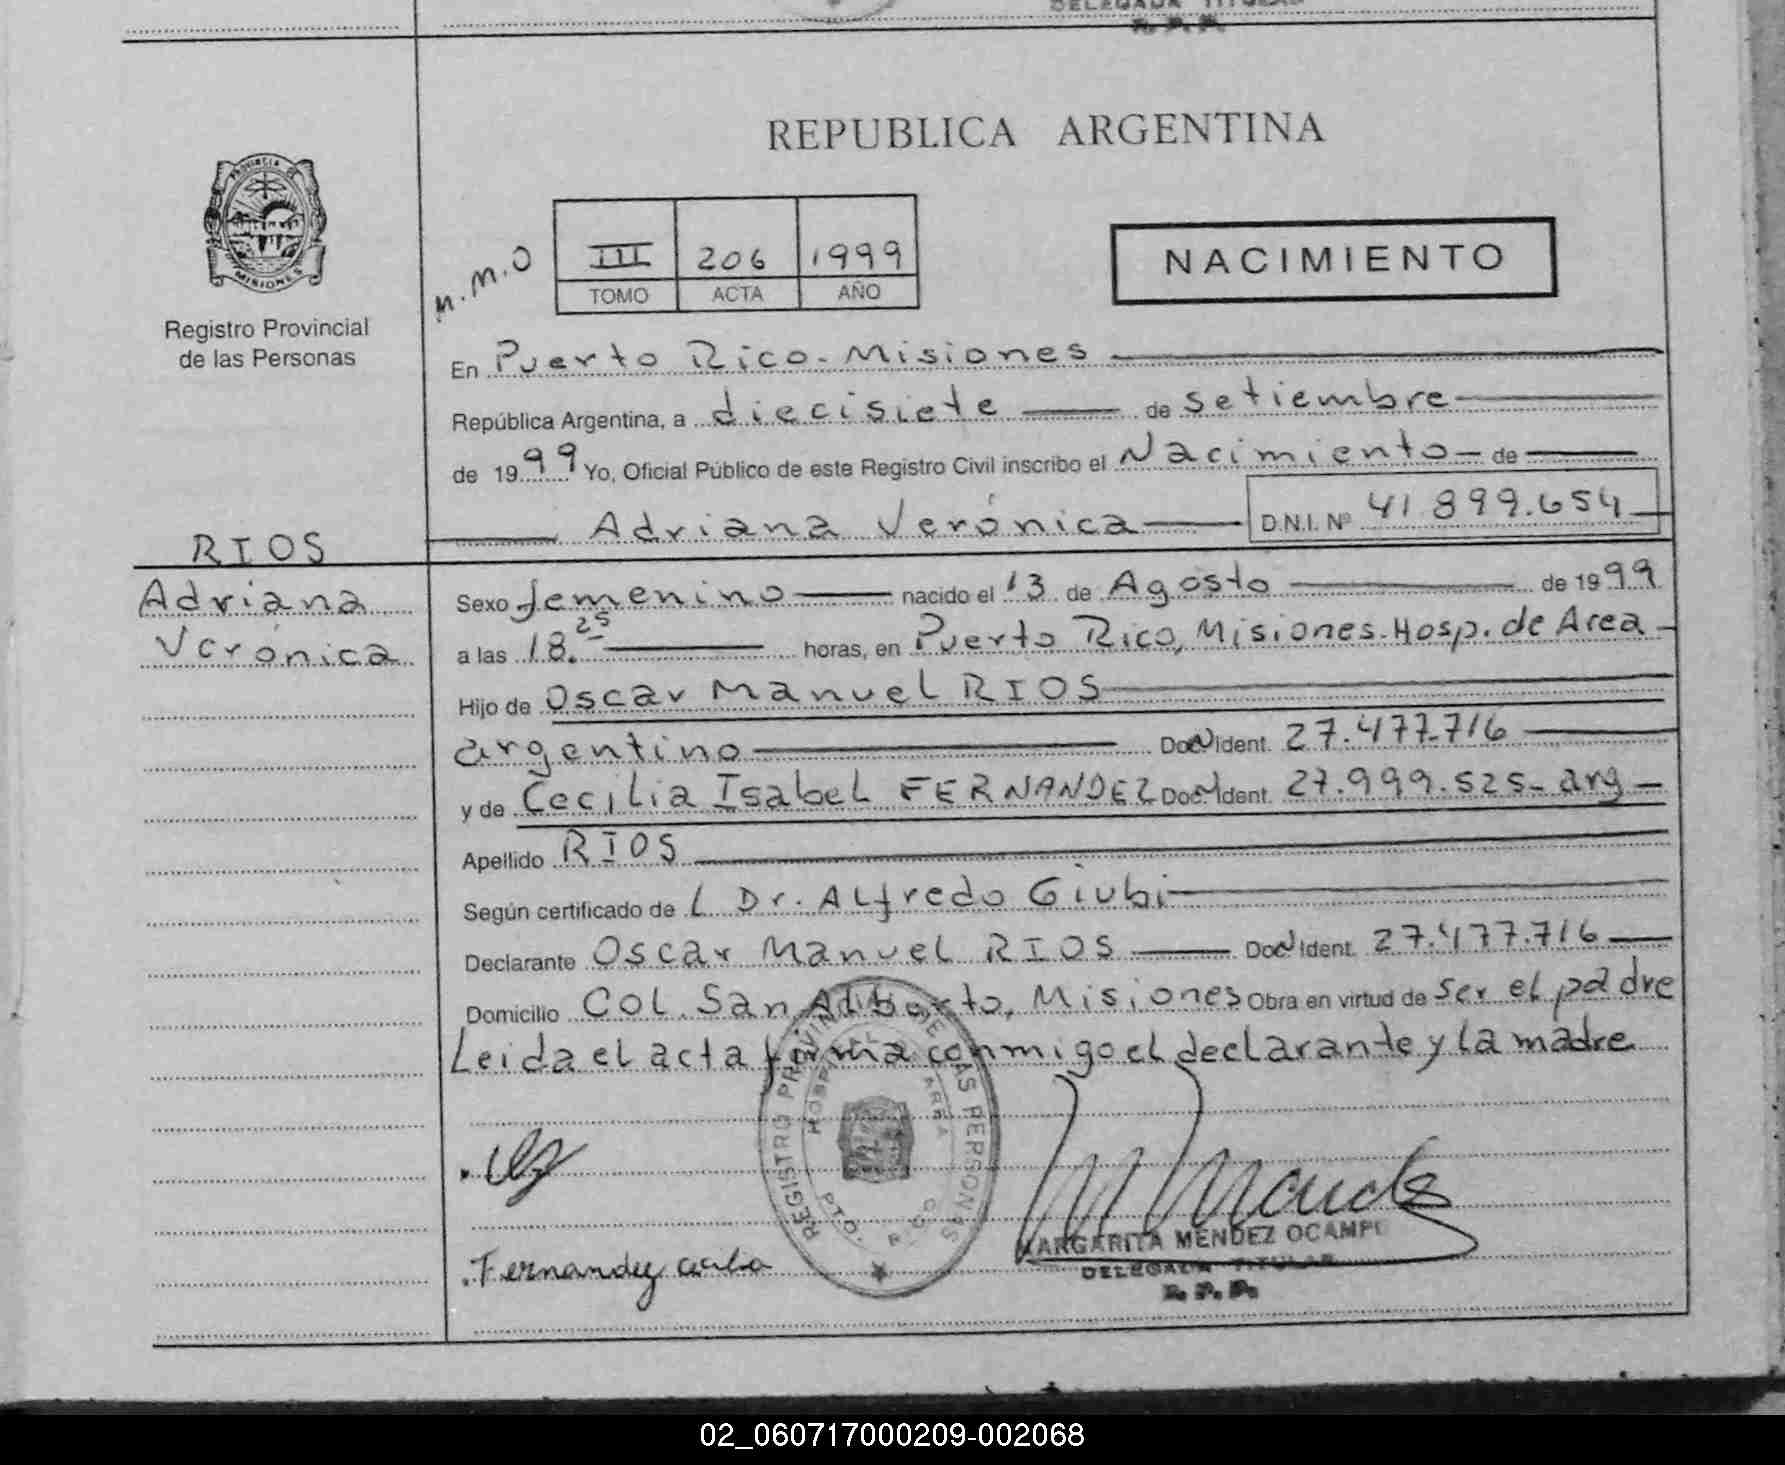 DELEGADA TITULAR
R. P. P.
PROVINCIA DE
MISIONES
Registro Provincial
de las Personas
REPUBLICA ARGENTINA
M.M.O
III 206 1999
TOMO ACTA AÑO
NACIMIENTO
En Puerto Rico - Misiones
República Argentina, a diecisiete de setiembre
de 1999 Yo, Oficial Público de este Registro Civil inscribo el Nacimiento de
Adriana Verónica D.N.I. Nº 41 899.654
RIOS
Adriana
Verónica
Sexo femenino nacido el 13 de Agosto de 1999
a las 18.25 horas, en Puerto Rico, Misiones. Hosp. de Area
Hijo de Oscar Manuel RIOS
argentino Doc. Ident. 27.477.716
y de Cecilia Isabel FERNANDEZ Doc. Ident. 27.999.525 - arg
Apellido RIOS
Según certificado de l Dr. Alfredo Giubi
Declarante Oscar Manuel RIOS Doc. Ident. 27.477.716
Domicilio Col. San Alberto, Misiones Obra en virtud de ser el padre
Leida el acta firma conmigo el declarante y la madre
REGISTRO PROVINCIAL DE LAS PERSONAS
HOSPITAL AREA
PTO. RICO
Fernandez Cecilia
MARGARITA MENDEZ OCAMPO
DELEGADA TITULAR
R. P. P.
02_060717000209-002068